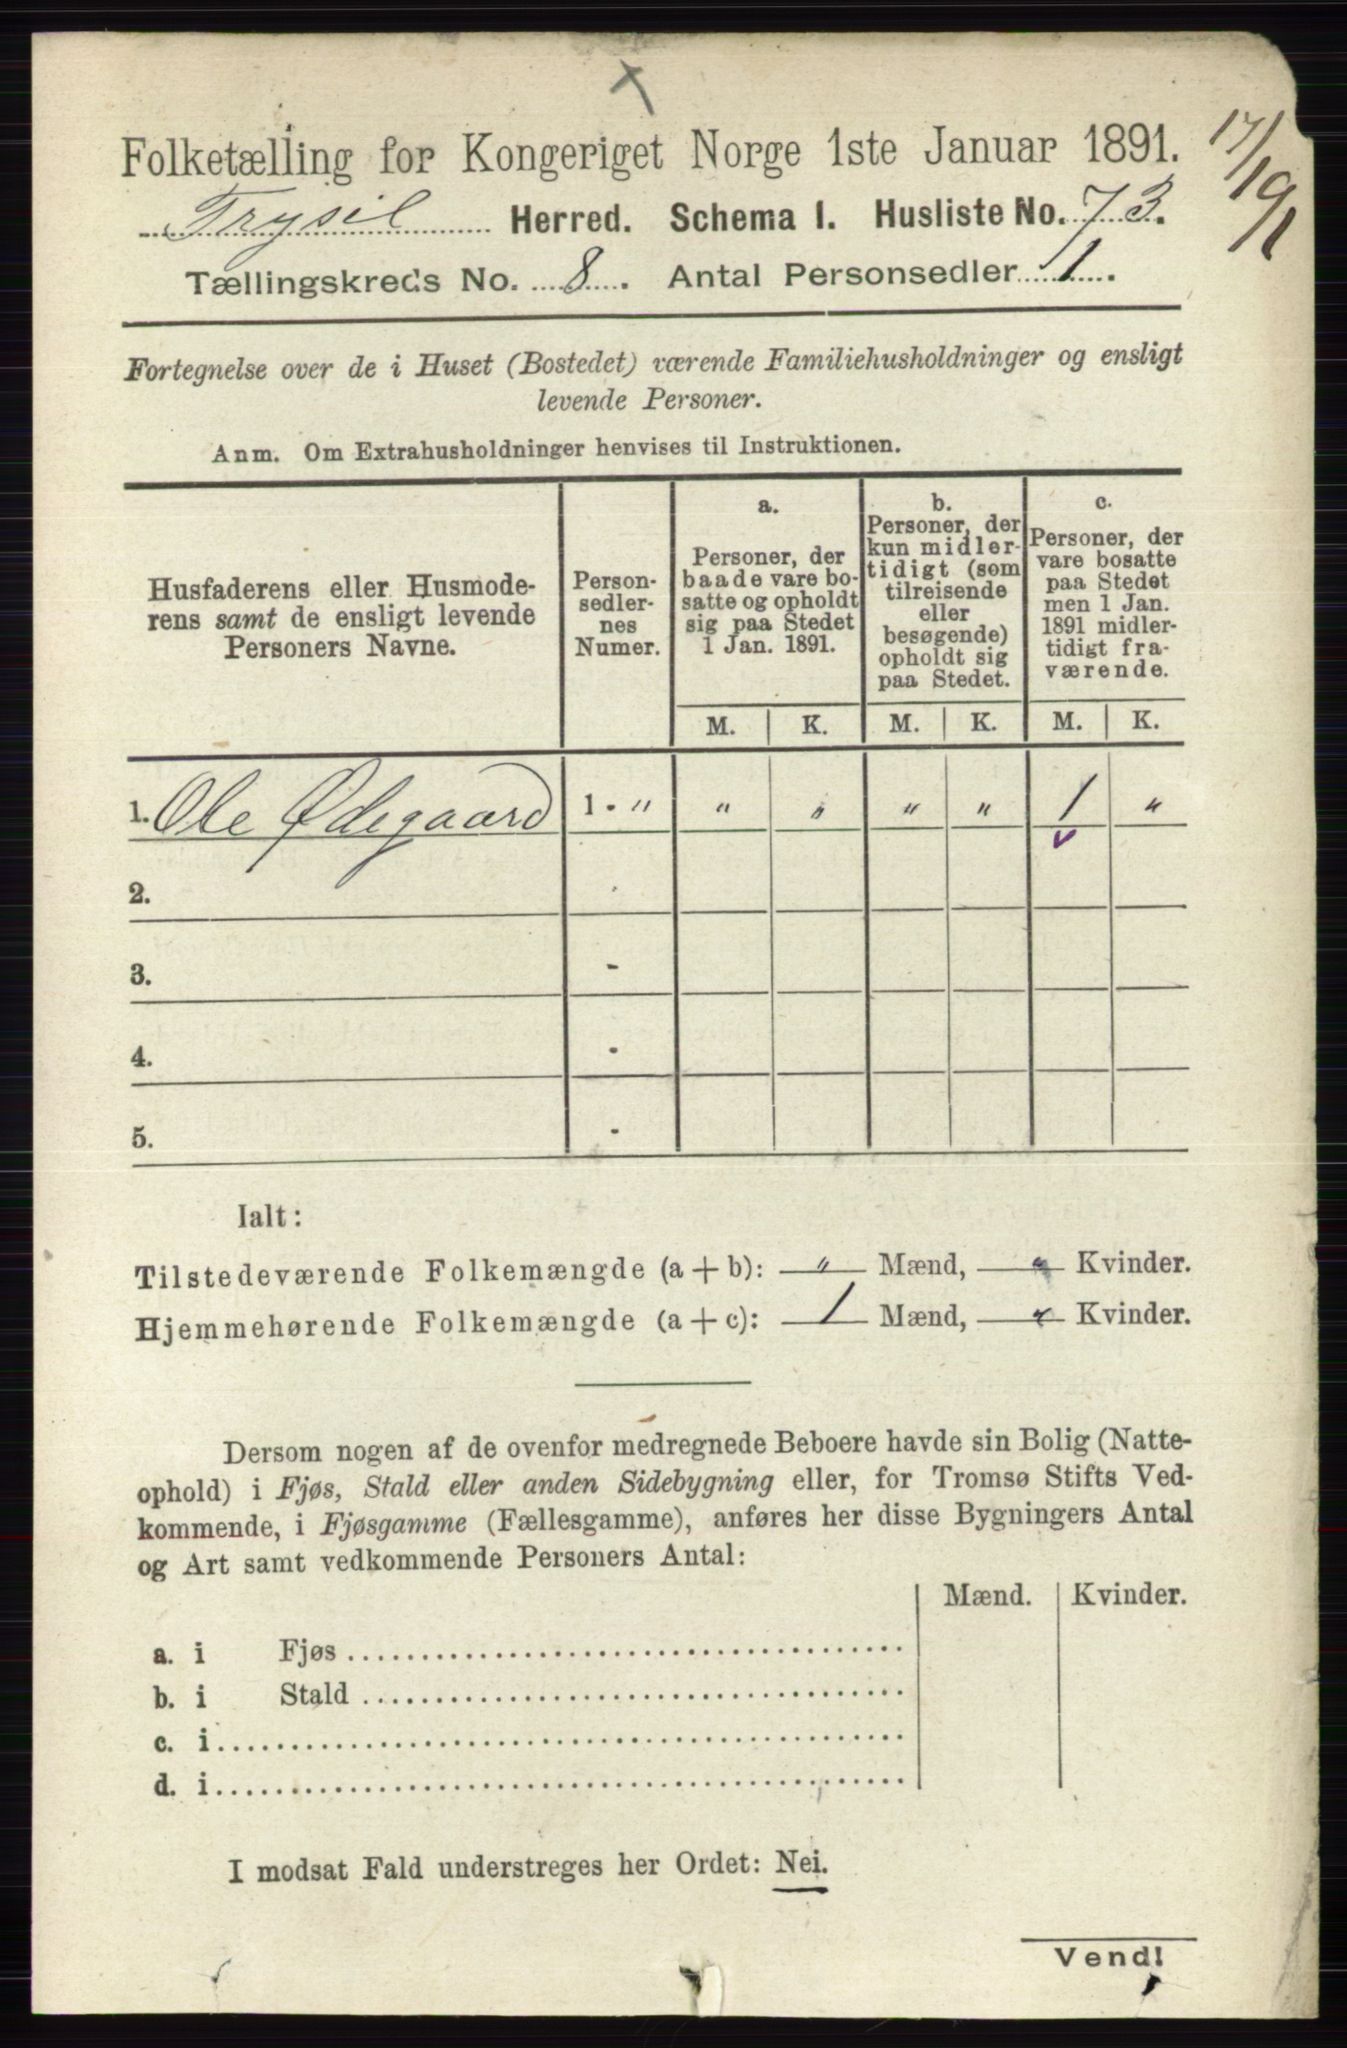 Folketælling for Kongeriget Norge 1ste Januar 1891.
17/19/1
Trysil Herred. Schema I. Husliste No. 73.
Tællingskreds No. 8. Antal Personsedler 1.
Fortegnelse over de i Huset (Bostedet) værende Familiehusholdninger og ensligt
levende Personer.
Anm. Om Extrahusholdninger henvises til Instruktionen.
Husfaderens eller Husmode-
rens samt de ensligt levende
Personers Navne.
Person-
sedler-
nes
Numer.
a.
Personer, der
baade vare bo-
satte og opholdt
sig paa Stedet
1 Jan. 1891.
b.
Personer, der
kun midler-
tidigt (som
tilreisende
eller
besøgende)
opholdt sig
paa Stedet.
c.
Personer, der
vare bosatte
paa Stedet
men 1 Jan.
1891 midler-
tidigt fra-
værende.
M. K. M. K. M. K.
1. Ole Ødegaard 1 - " " " " " 1 "
2. -
3. -
4. -
5. -
Ialt:
Tilstedeværende Folkemængde (a + b): " Mænd, " Kvinder.
Hjemmehørende Folkemængde (a + c): 1 Mænd, " Kvinder.
Dersom nogen af de ovenfor medregnede Beboere havde sin Bolig (Natte-
ophold) i Fjøs, Stald eller anden Sidebygning eller, for Tromsø Stifts Ved-
kommende, i Fjøsgamme (Fællesgamme), anføres her disse Bygningers Antal
og Art samt vedkommende Personers Antal:
Mænd. Kvinder.
a. i Fjøs
b. i Stald
c. i
d. i
I modsat Fald understreges her Ordet: Nei.
Vend!